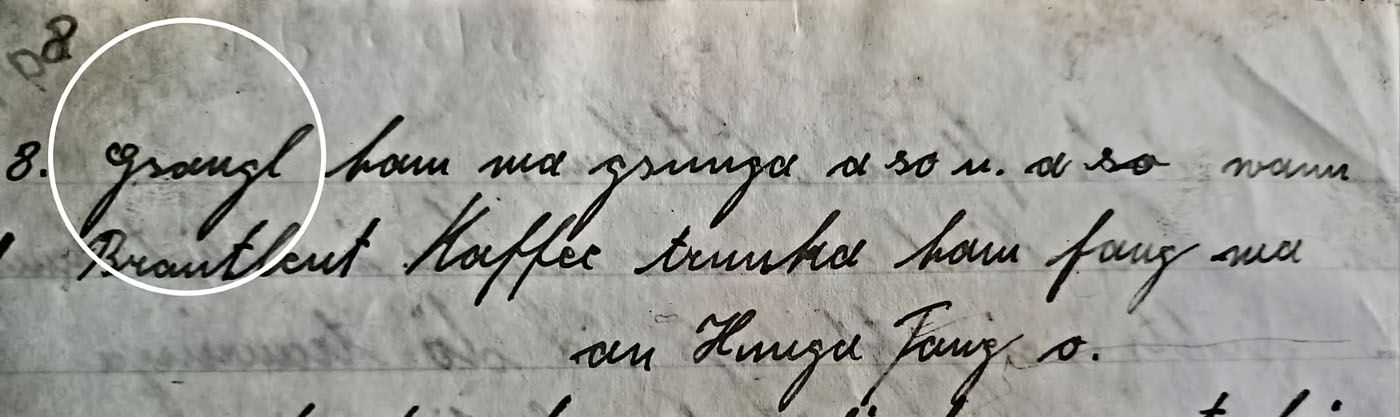 D8
8. Gsangl ham ma gsunga a so u. a so wann
Brautleut Kaffee trunka ham fang ma
an Hunga Tanz o.